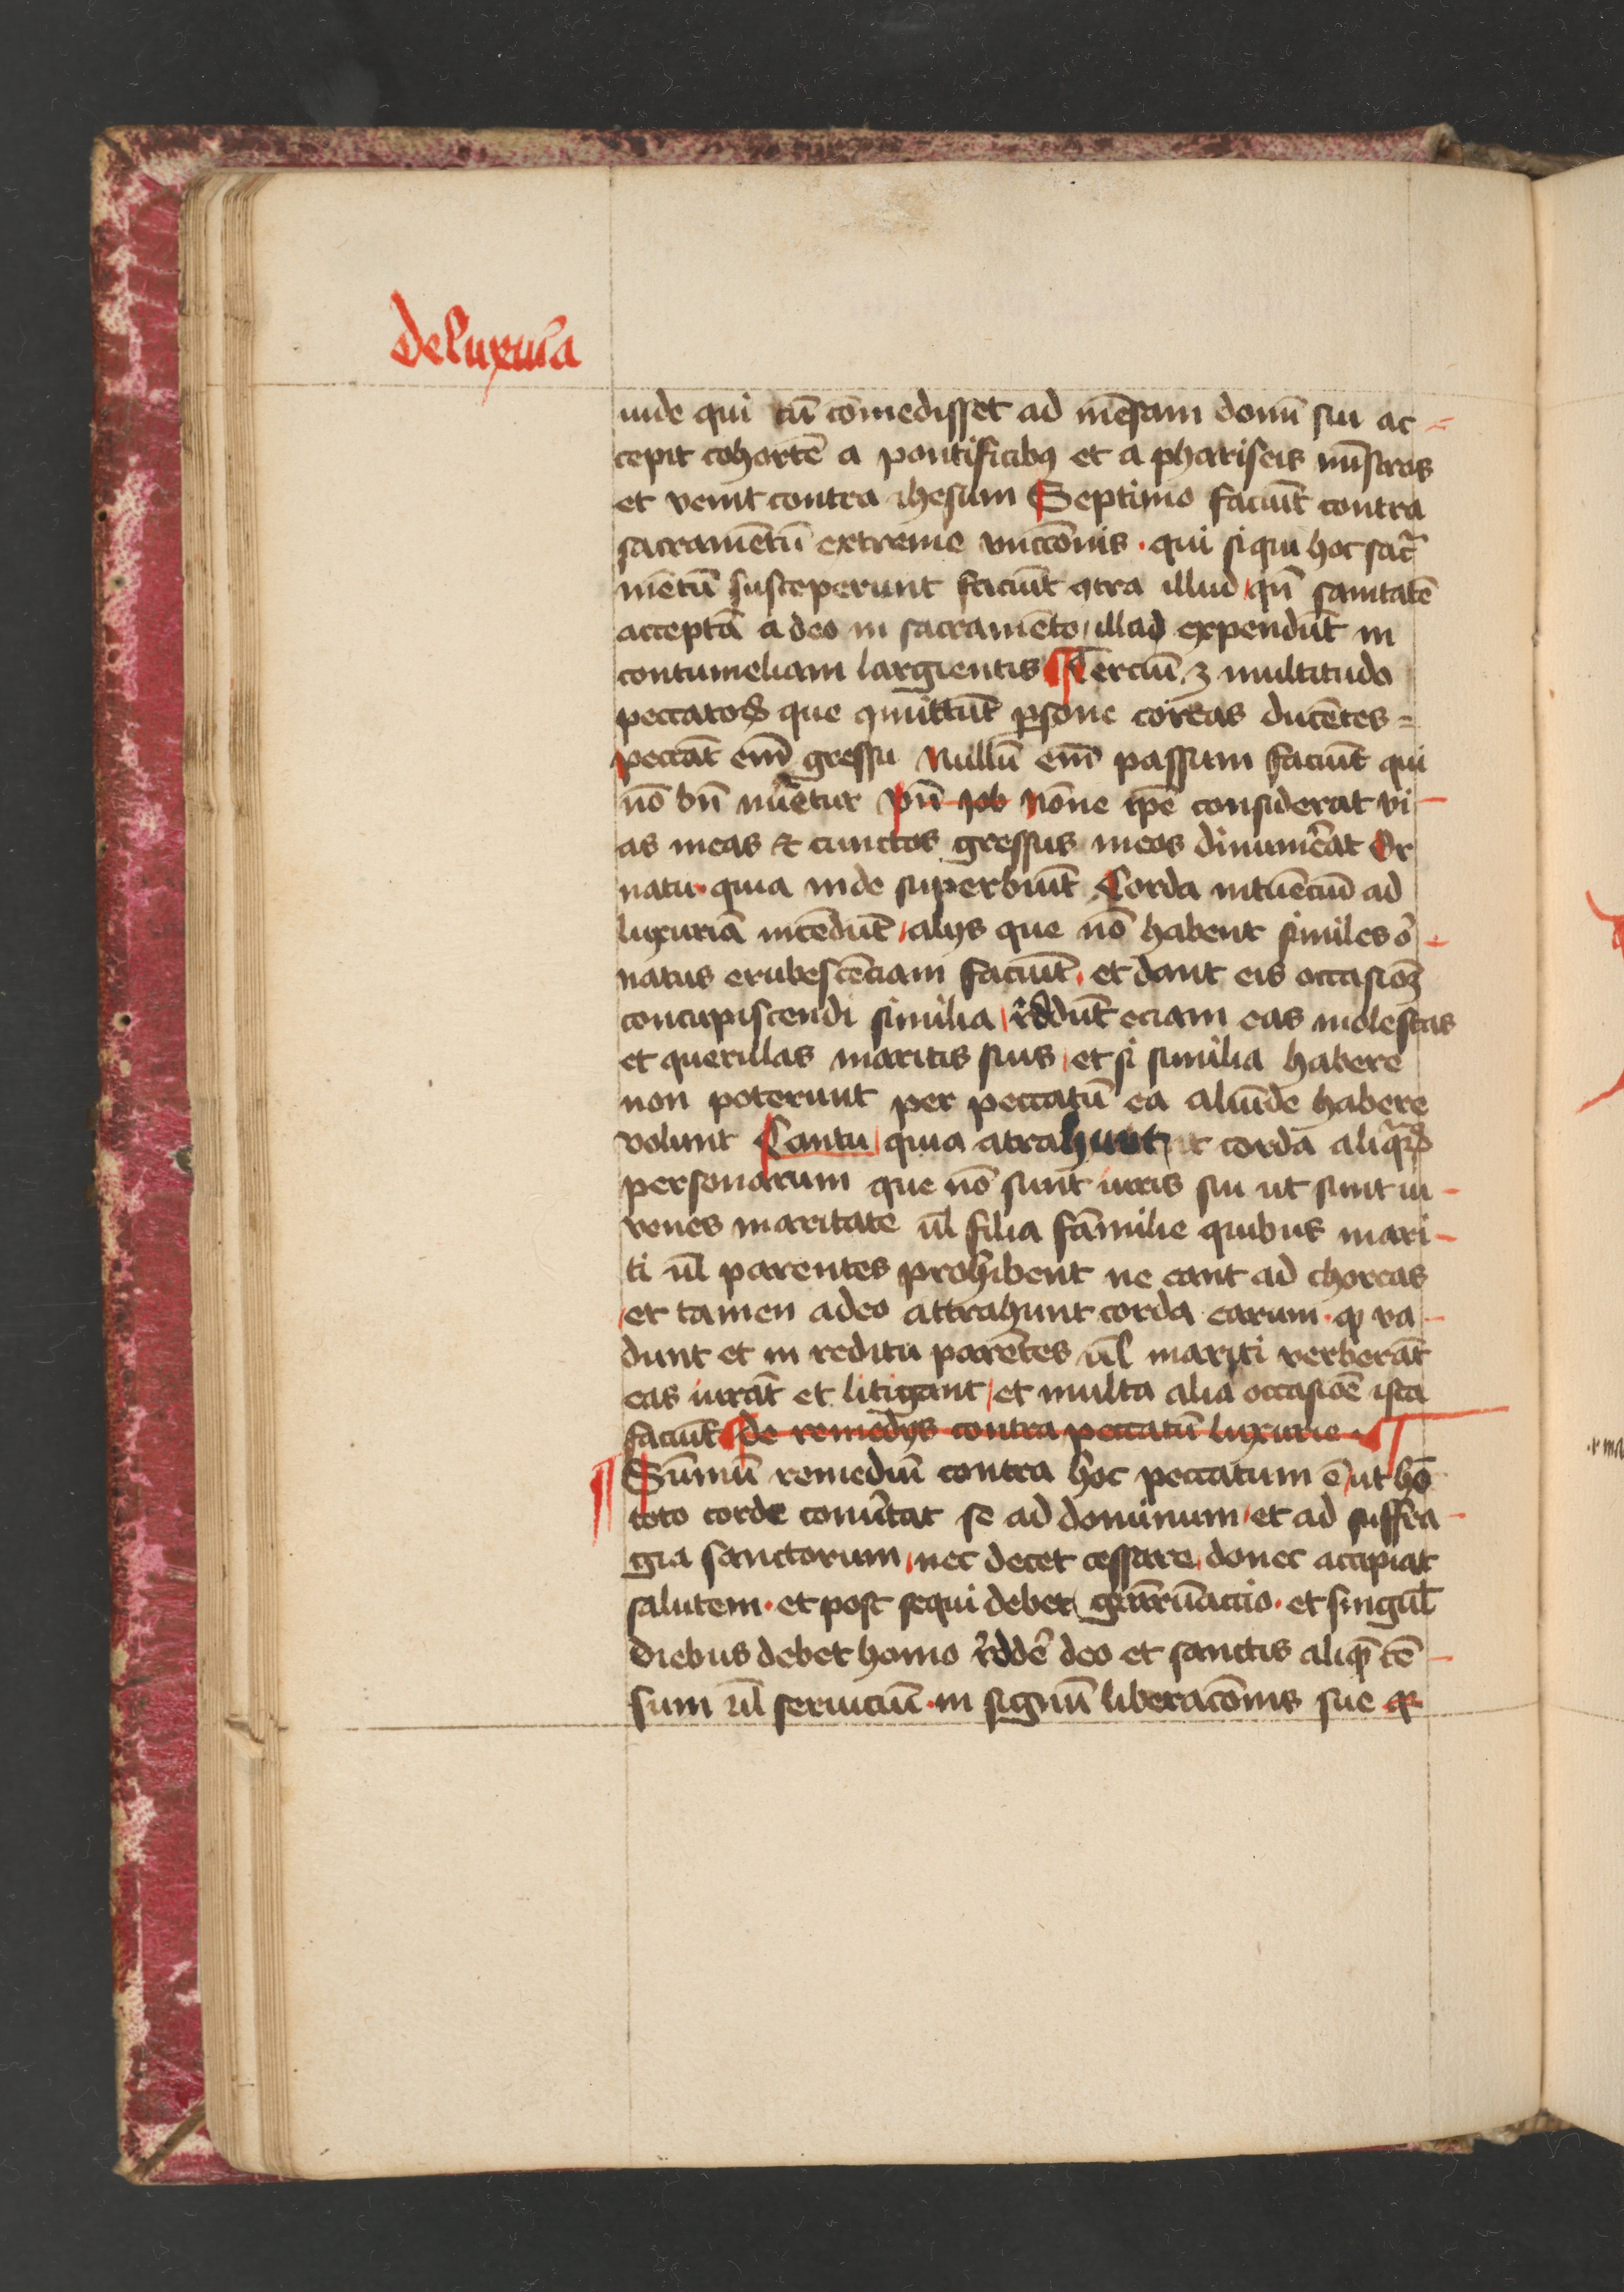 De luxuria
iude qui cū comedisset ad mēsam domī sui ac
cepit cohortē a pontificibꝰ et a phariseis mīstros
et venit contra ihesum Septimo faciūt contra
sacramētū extreme vnccōnis · qui siqui hoc sacͣ
mētū susceperunt faciūt ꝯtra illud qn̄ sanitatē
acceptā a deo in sacramēto illad expendūt in
contumeliam largientis ¶ Terciū ꝫ multitudo
peccatoꝝ que ꝯmittūt ꝑsone coreas ducētes
peccāt em̄ gressu Nullū em̄ passum faciūt qui
nō bn̄ nūetur Vn̄ Job Nōne ip̄e considerat vi
as meas & cunctos gressus meos dinumēat Or
natu · quia inde superbiūt Corda intuēciū ad
luxuriā incēdūt alijs que nō habent similes or
natus erubescēciam faciūt · et dant eis occasioꝫ
concupiscendi similia rēddūt eciam eas molestas
et querulas maritis suis et si similia habere
non poterunt per peccatū ea aliūde habere
volunt Cantu quia atrahunt corda aliqͣꝝ
personarum que nō sunt iuris sui ut sunt iu
venes maritate ul̄ filia familie quibus mari
ti ul̄ parentes prohibent ne eant ad choreas
et tamen adeo attrahunt corda earum · ꝙ va
dunt et in reditu parētes ul̄ mariti verberāt
eas iurāt et litigant et multa alia occasiōe ista
faciūt ¶ De remedijs contra peccatū luxurie
¶ Summū remediū contra hoc peccatum ē ut hō
toto corde conūtat se ad dominum et ad suffra
gia sanctorum nec decet cessare donec accipiat
salutem · et post sequi debet grārūactio · et singul̄
diebus debet homo rēddē deo et sanctis aliqͣ cē
sum ul̄ seruiciū · in signū liberacōnis sue ꝙ